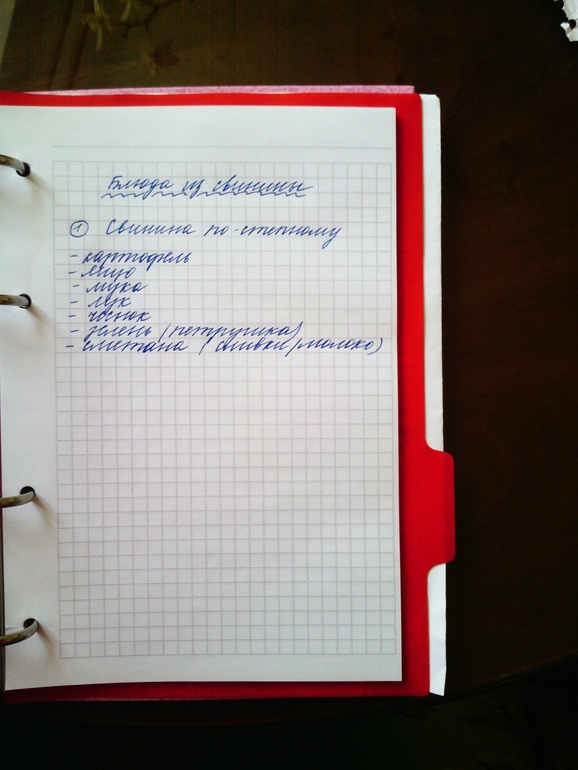 Блюда из свинины
1 Свинина по-степному
- картофель
- яйцо
- мука
- лук
- чеснок
- зелень (петрушка)
- сметана (сливки/молоко)